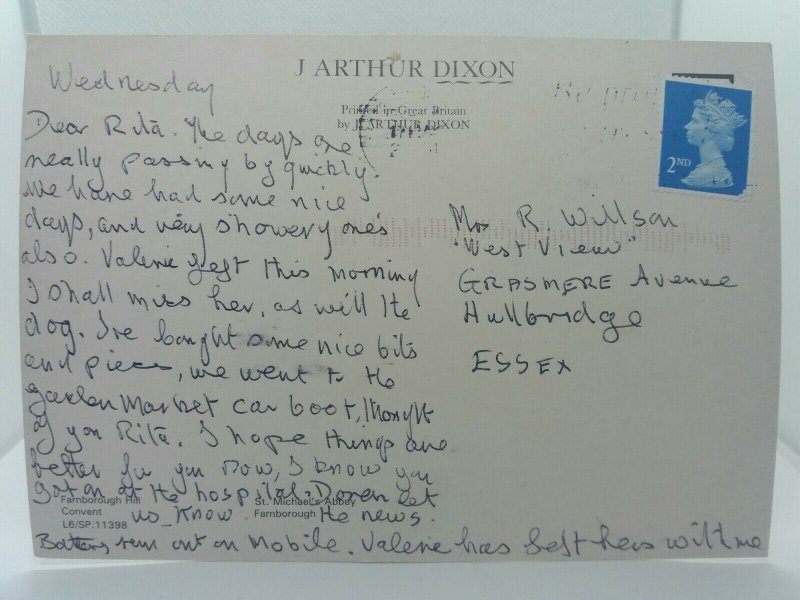 J ARTHUR DIXON
Printed in Great Britain
by J. ARTHUR DIXON
2ND
Wednesday
Dear Rita. The days are
really passing by quickly.
We have had some nice
days, and very showery ones
also. Valerie left this morning
I shall miss her, as will the
dog. I've bought some nice bits
and pieces, we went to the
garden Market car boot, I thought
of you Rita. I hope things are
better for you now, I know you
got on at the hospital. Doreen let
us know the news.
Battery run out on Mobile. Valerie has left hers with me
Mrs R. Willson
"West View"
GRASMERE Avenue
Hullbridge
ESSEX
Farnborough Hill
Convent
L6/SP.11398
St. Michael's Abbey
Farnborough